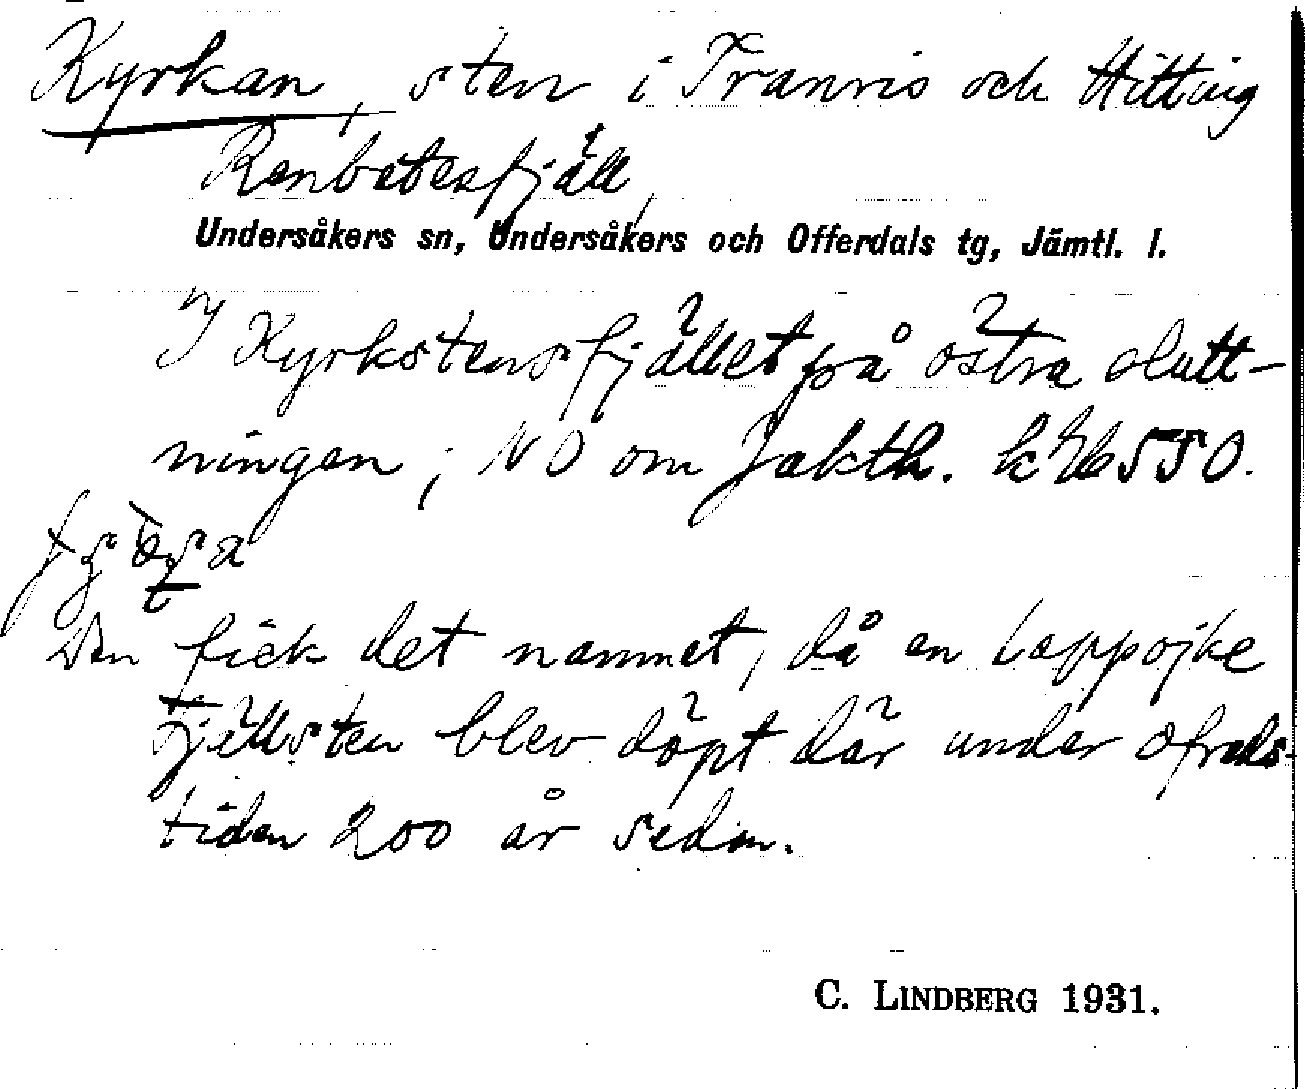 Kyrkan, sten i Tranris och Hitting
Renbetesfjäll,
Undersåkers sn, Undersåkers och Offerdals tg, Jämtl. l.
I Kyrkstensfjället på östra slutt-
ningen; NO om Jakth. k 550.
Den fick det namnet, då en lappojke
Fjällsten blev döpt där under ofreds-
tiden 200 år sedan.
C. LINDBERG 1931.